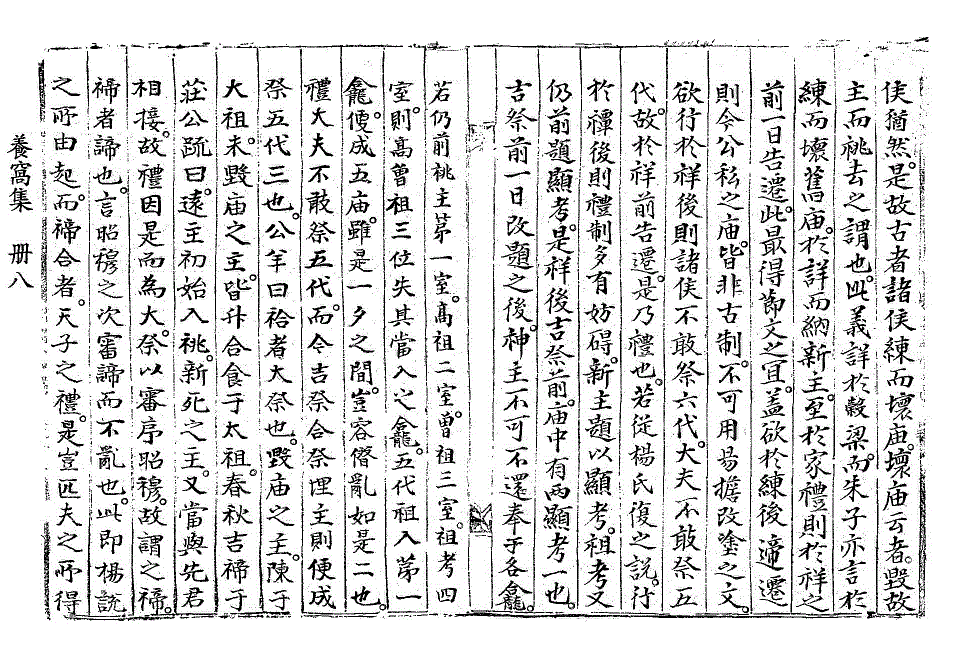 侯猶然是故古者諸侯練而壞庙壞庙云者毀故
主而祧去之謂也此義詳於穀梁而朱子亦言於
練而壞舊庙於詳而納新主至於家禮則於祥之
前一日告遷此最得節文之宜盖欲於練後遞遷
則今公私之庙皆非古制不可用易擔改塗之文
欲行於祥後則諸侯不敢祭六代大夫不敢祭五
代故於祥前告遷是乃禮也若從楊氏復之說行
於禫後則禮制多有妨碍新主題以顯考祖考又
仍前題顯考是祥後吉祭前庙中有两顯考一也
吉祭前一日改題之後神主不可不還奉于各龕
若仍前祧主第一室高祖二室曾祖三室祖考四
室則高曾祖三位失其當入之龕五代祖入第一
龕便成五庙雖是一夕之間豈容僭亂如是二也
禮大夫不敢祭五代而今吉祭合祭埋主則便成
祭五代三也公羊曰祫者大祭也毀庙之主陳于
大祖未毀庙之主皆升合食于太祖春秋吉禘于
莊公䟽曰遠主初始入祧新死之主又當與先君
相接故禮因是而為大祭以審序昭穆故謂之禘
禘者諦也言昭穆之次審諦而不亂也此即楊說
之所由起而禘合者天子之禮是豈匹夫之所得
養窩集 册八